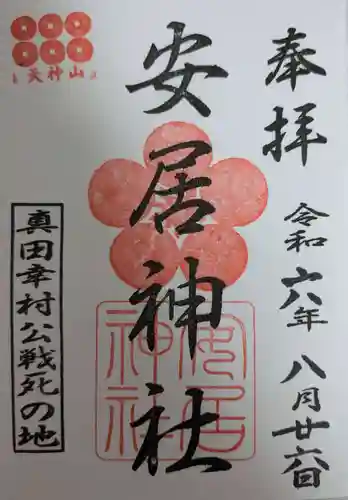 奉拝
令和六年八月廿六日
安居神社
安居神社
天神山
真田幸村公戦死の地